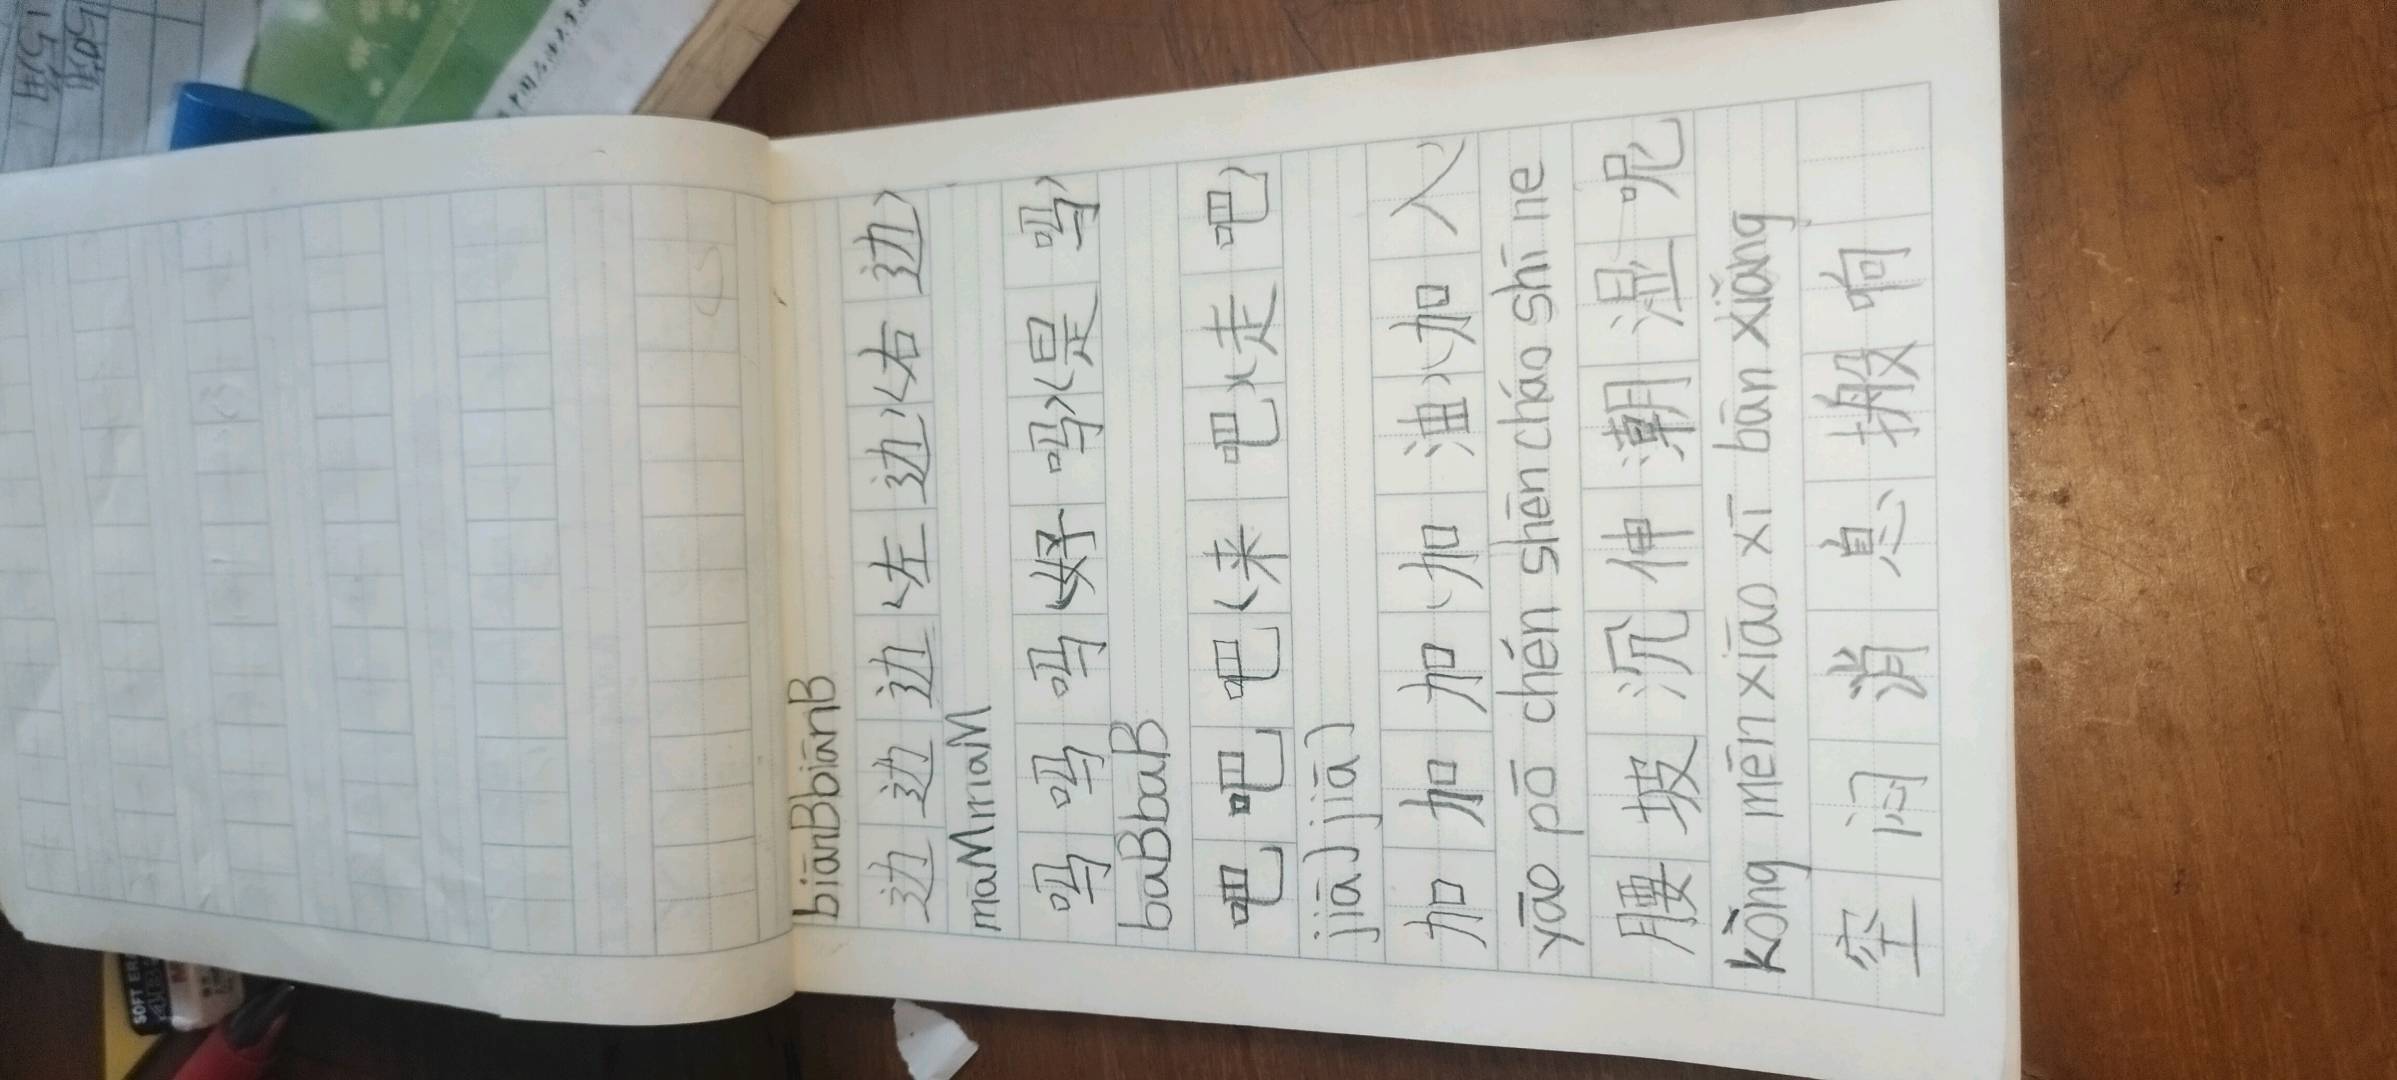 biānBbiānB
边边边(左边)(右边)
māMmaM
吗吗吗(好吗)(是吗)
baBbaB
吧吧吧(来吧)(走吧)
jiāJjiāJ
加加加(加油)(加入)
yāo pō chén shēn cháo shī ne
腰坡沉伸潮湿呢
kōng mēn xiāo xī bān xiǎng
空闷消息搬响
SOFT ERA